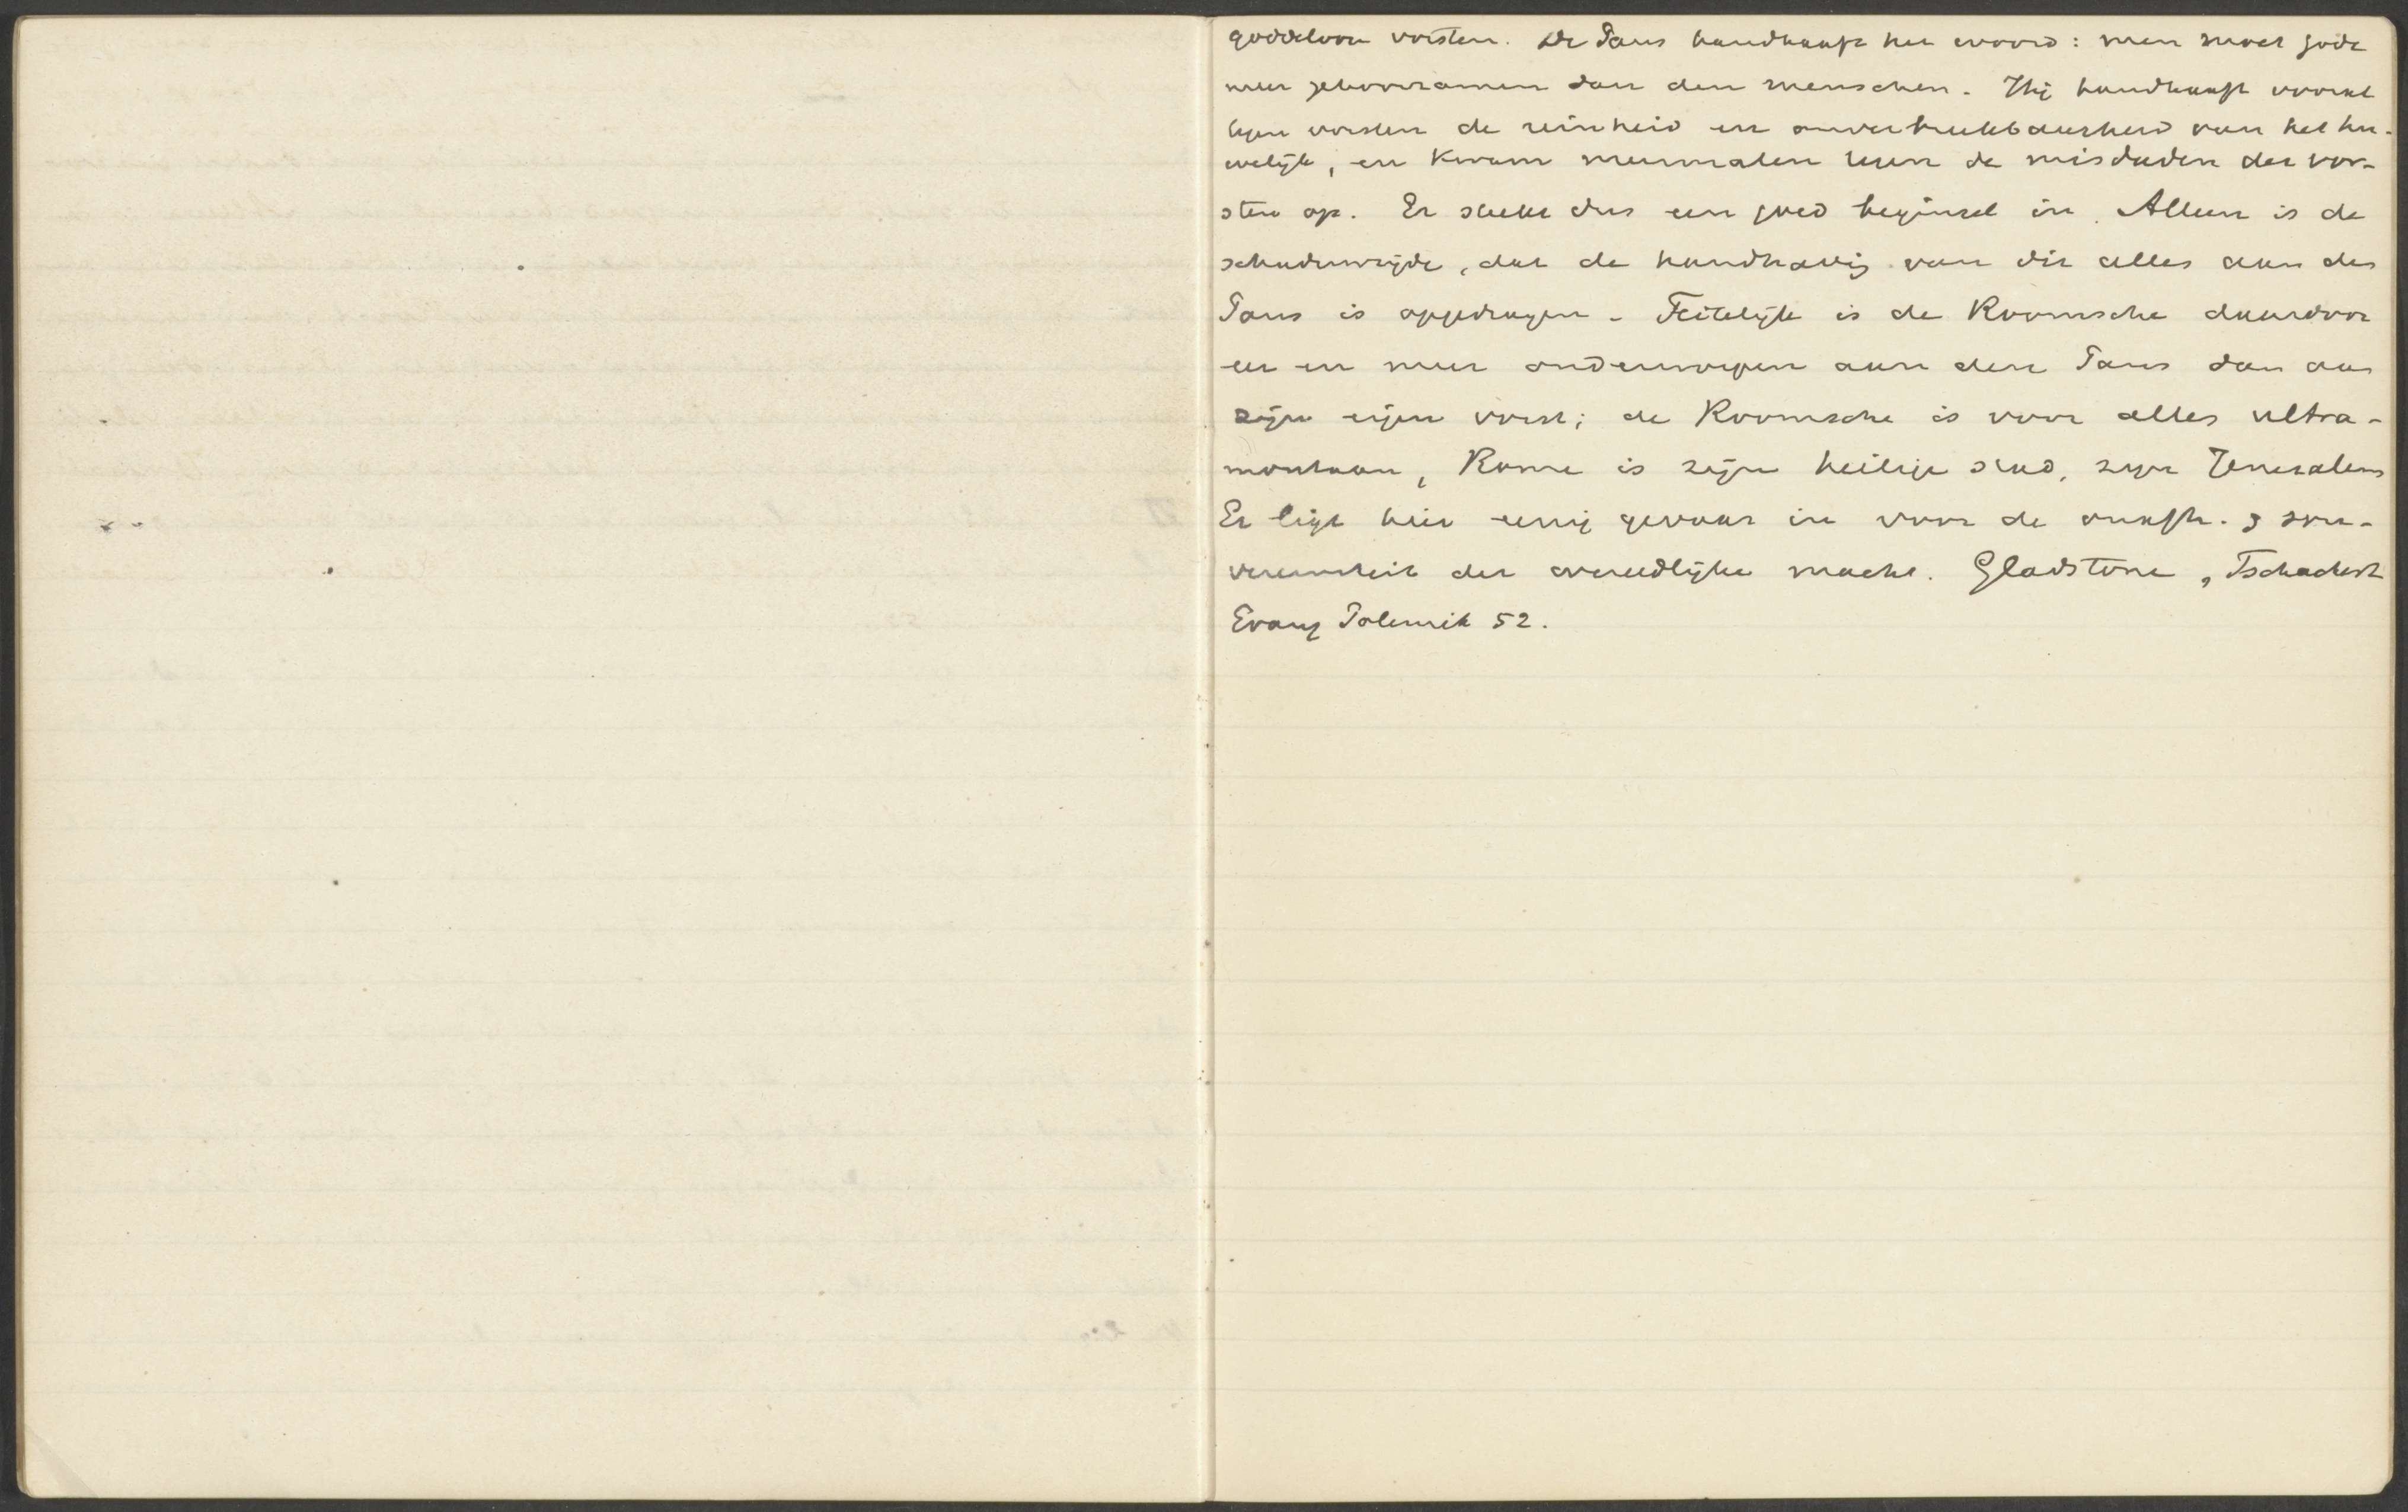 goddeloze vorsten. De Paus handhaaft het woord: men moet Gode
meer gehoorzamen dan den menschen. Hij handhaaft vooral
tegen vorsten de reinheid en onverbreekbaarheid van het hu-
welijk, en kwam meermalen tegen de misdaden der vor-
sten op. Er steekt dus een goed beginsel in. Alleen is de
schaduwzijde, dat de handhavig van dit alles aan den
Paus is opgedragen. Feitelijk is de Roomsche daardoor
eer en meer onderworpen aan den Paus dan aan
zijn eigen vorst; de Roomsche is voor alles ultra-
montaan, Rome is zijn heilige stad, zijn Jeruzalem
Er ligt hier eenig gevaar in voor de onafh. & sou-
vereiniteit der overheidlijke macht. Gladstone, Tschackert
Evang Polemik 52.